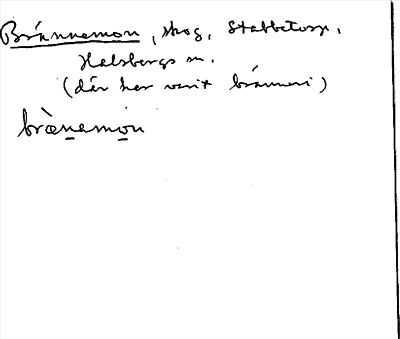 Brännemon, skog, Stabbetorp,
Halsbergs sn.
(där har varit bränneri)
brænemon